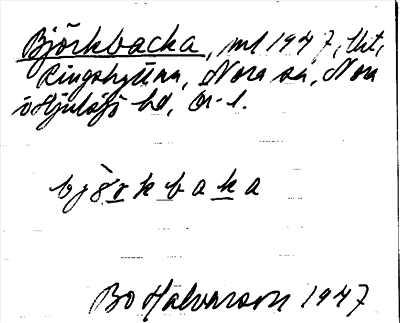 Björkbacka, ml 1947, lht,
Ringshyttan, Nora sn, Nora
o Hjulsjö hd, Ör. l.
bjö̀rkbaka
Bo Halvarson 1947